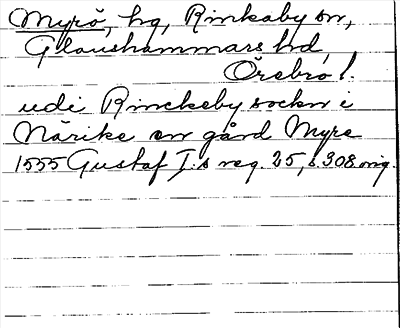 Myrö, hg, Rinkaby sn,
Glanshammars hd,
Örebro l.
udi Rinckeby sockn i
Närike en gård Myre
1555 Gustaf I:s reg. 25, s. 308 orig.